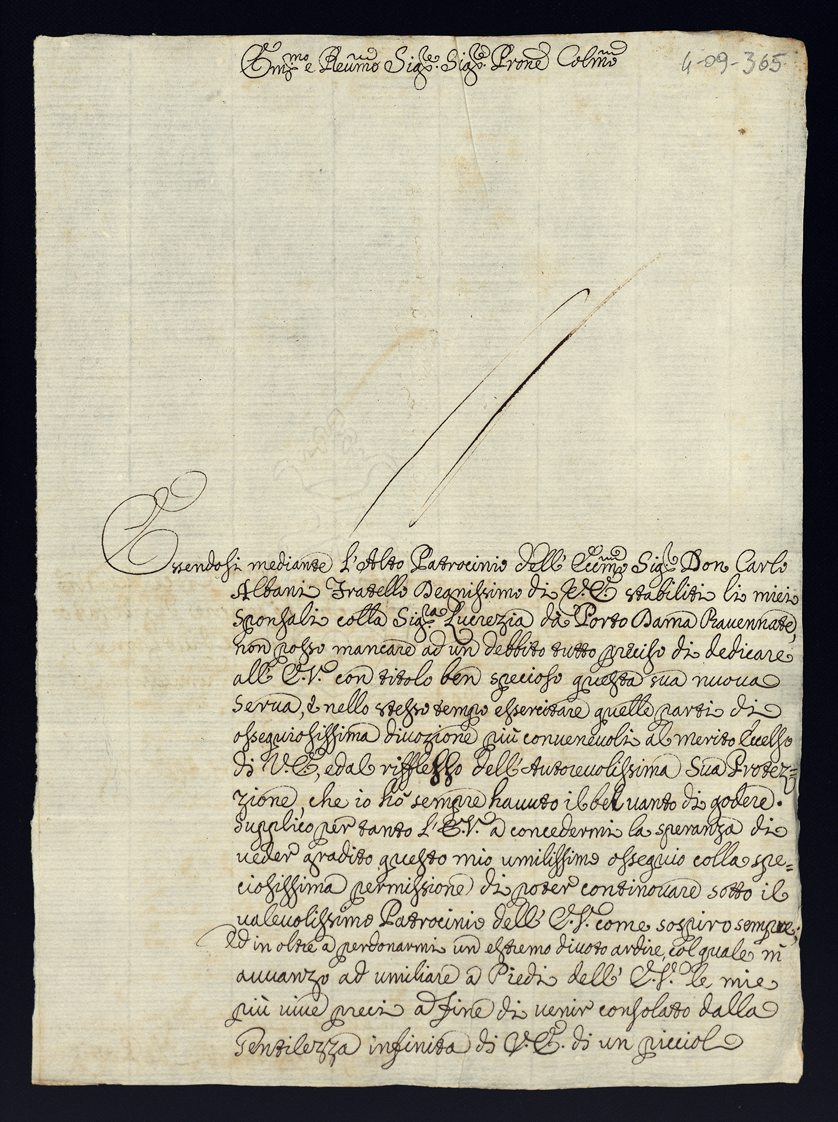 Em.mo e Reu.mo Sig.re Sig.re Prone Colmo
4-09-365
Essendosi mediante l'Alto Patrocinio dell' Ecc.mo Sig.r Don Carlo
Albani Fratello Degnissimo di V.E. stabiliti li miei
sponsali colla Sig.ra Lucrezia da Porto Dama Rauennate,
non posso mancare ad un debbito tutto preciso di dedicare
all' E.V. con titolo ben specioso questa sua nuoua
Serua, e nello stesso tempo essercitare quelle parti di
ossequiosissima diuozione più conueneuoli al merito Eccelso
di V.E, ed al rifflesso dell' Autoreuolissima Sua Protez=
zione, che io hò sempre hauuto il bel uanto di godere.
Supplico per tanto l'E.V. a concedermi la speranza di
ueder gradito questo mio umilissimo ossequio colla spe=
ciosissima permissione di poter continouare sotto il
ualeuolissimo Patrocinio dell' E.V. come sospiro sempre;
Ed in oltre a perdonarmi un estremo diuoto ardire, col quale m'
auuanzo ad umiliare a Piedi dell' E.V. le mie
più uiue preci a fine di uenir consolato dalla
Gentilezza infinita di V.E. di un picciol